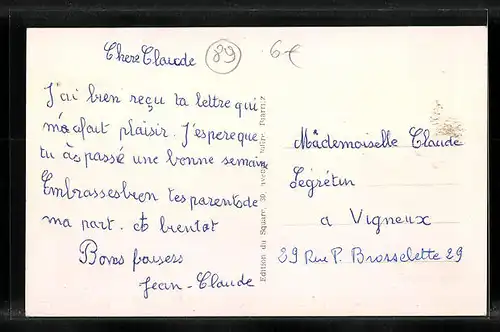 Chere Claude
89
6€
J'ai bien reçu ta lettre qui
m'a afait plaisir. J'espere que
tu às passé une bonne semaine
Embrasses bien tes parents de
ma part. et bientot
Bons baisers
Jean-Claude
Edition du Square, 30, Biarritz
Mâdemoiselle Claude
Legrétin
a Vigneux
89 Rue P. Brosselette 29